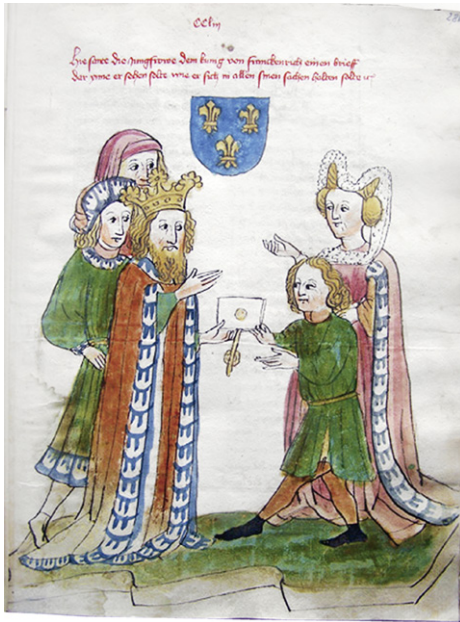 Hie sante die Jungfrowe dem kung von franckenrich einen brieff
der ynne er sehen solte wie er sich in allen sinen sachen halten solte